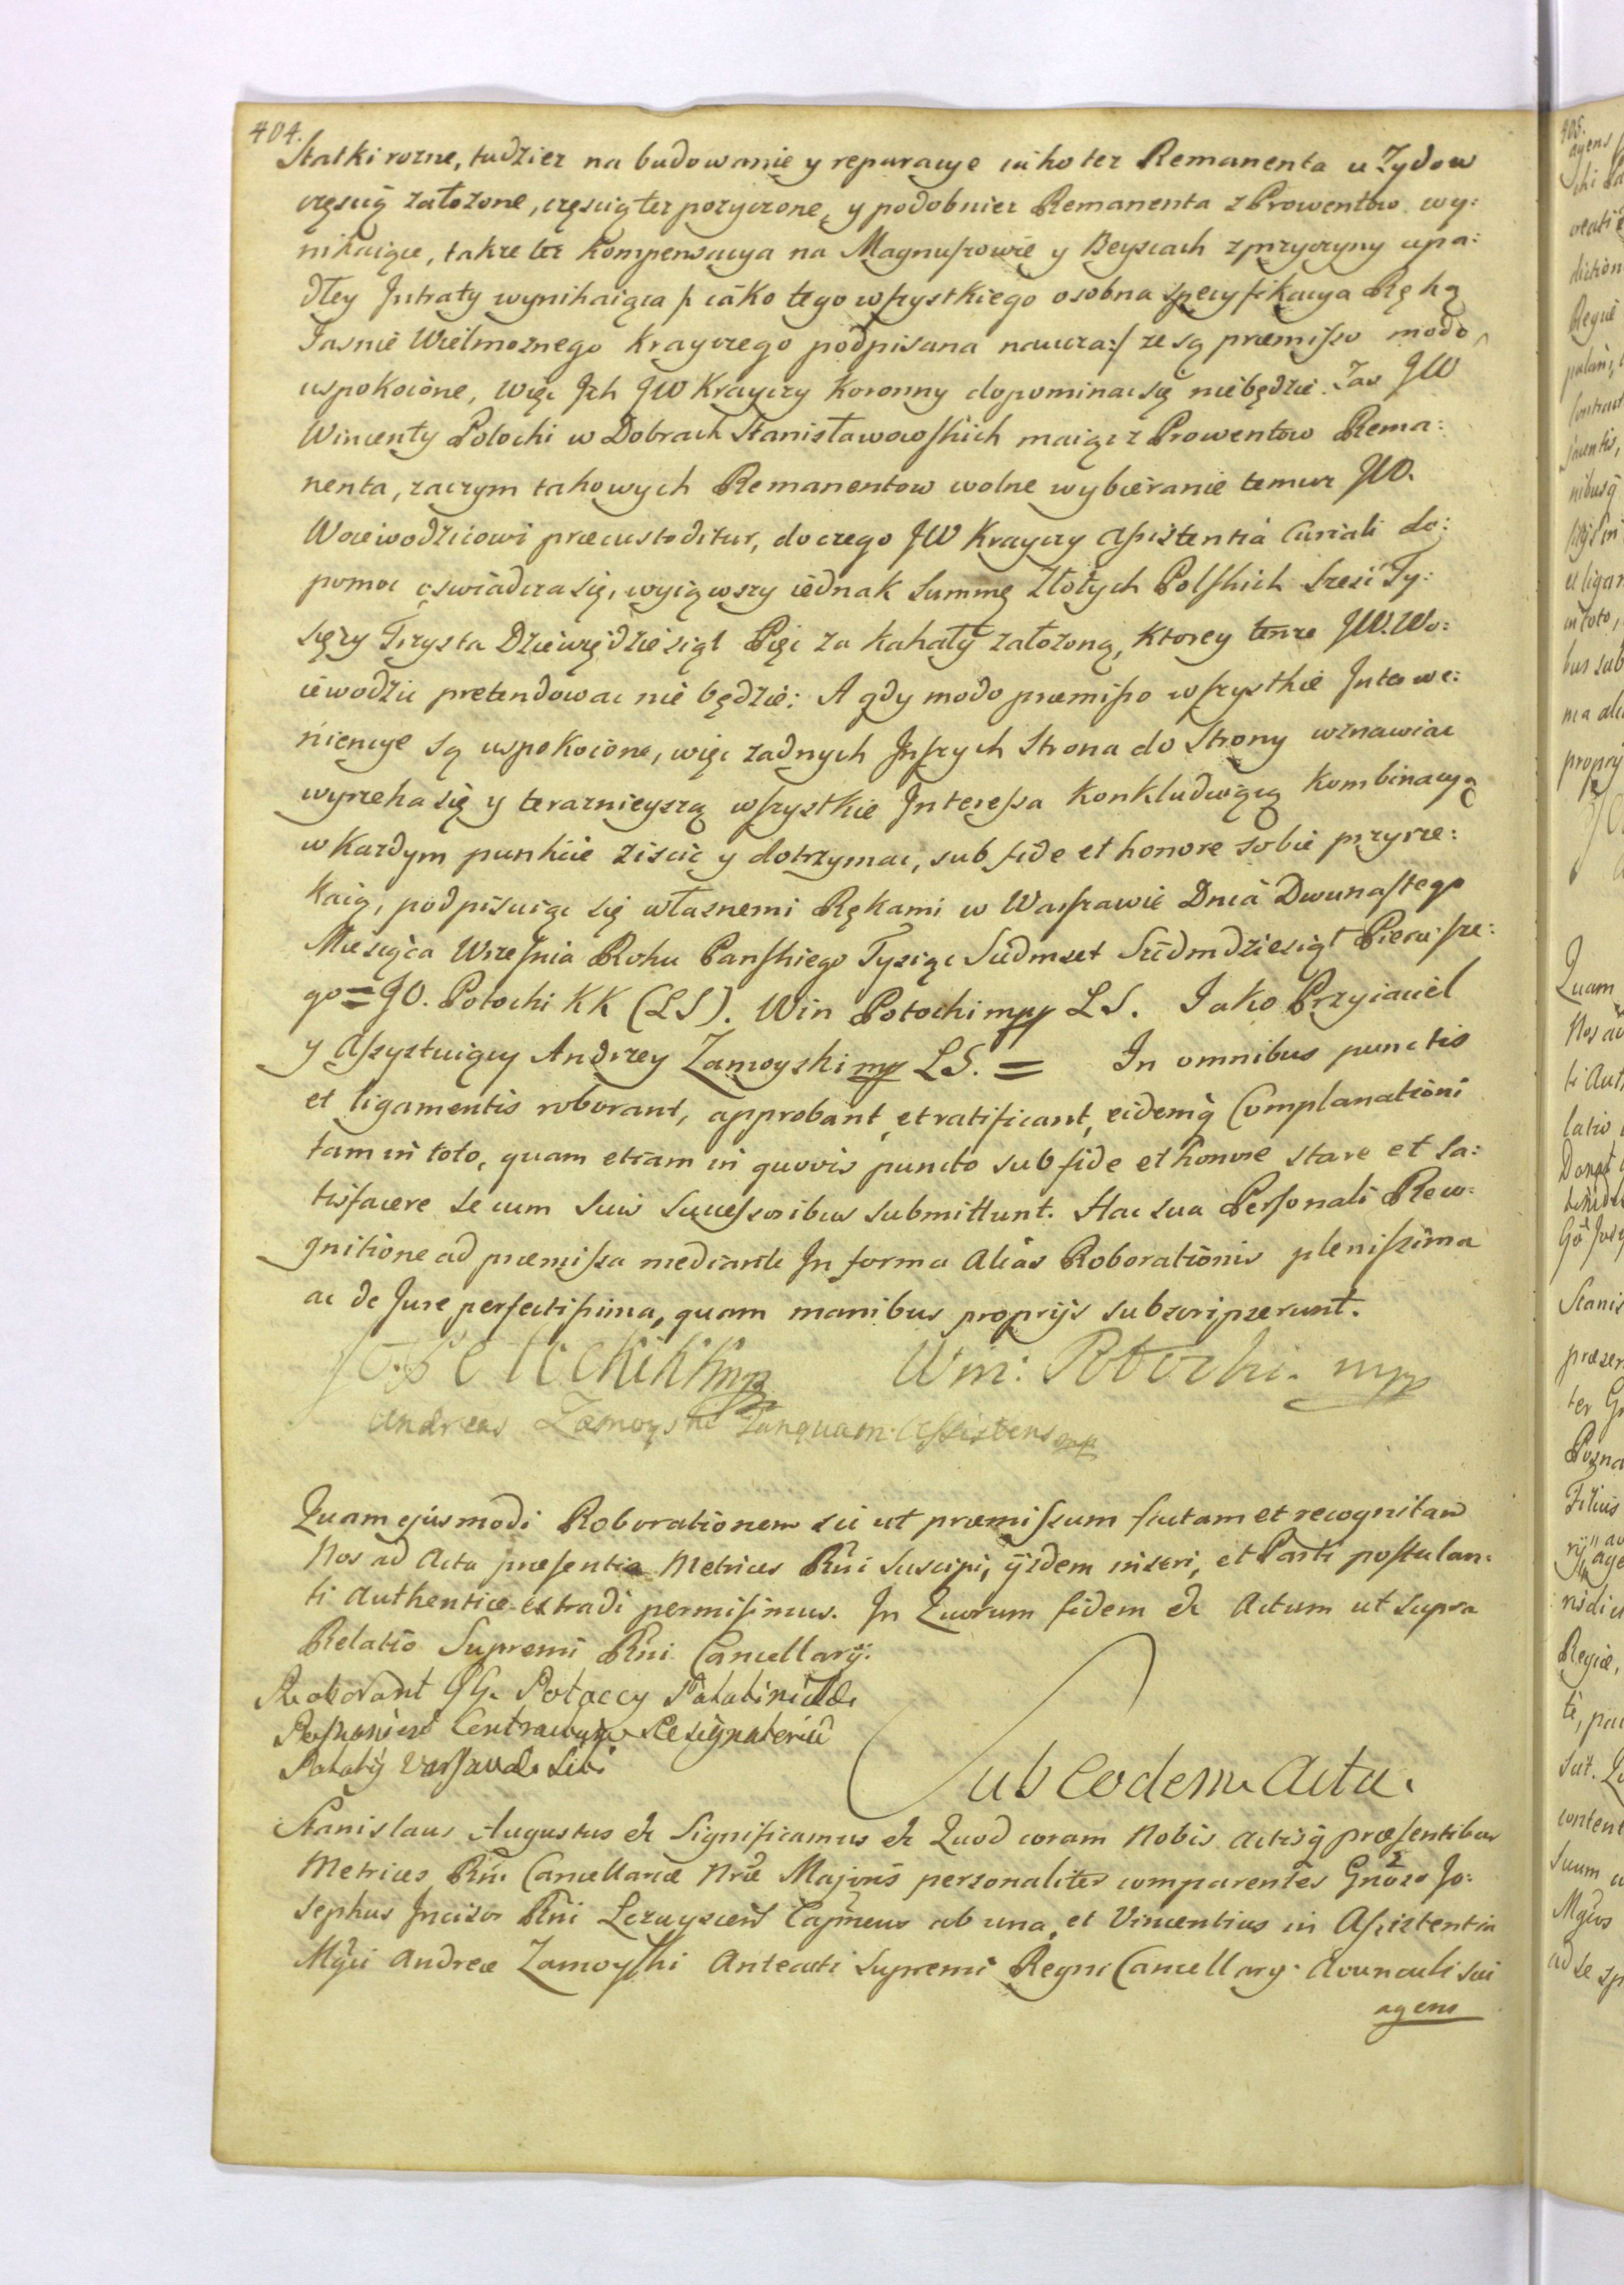 404.
Statki rozne, tudziez na budowanie y reparacye iako tez Remanenta u Zydow
częscią załozone, częscią tez pozyczone, y podobniez Remanenta z Prowentow wy:
nikaiące, takze tez Kompensacya na Magnuszowie y Beyscach z przyczyny upa:
dłey Intraty wynikaiąca /: iako tego wszystkiego osobna specyfikacya Ręką
Jasnie Wielmoznego Krayczego podpisana naucza:/ ze są præmisso modo
uspokoione, więc Ich JW Krayczy Koronny dopominac się niebędzie. Zas JW
Wincenty Potocki w Dobrach Stanisławowskich maiąc z Prowentow Rema:
nenta, zaczym takowych Remanentow wolne wybieranie temuz JW.
Woiewodzicowi præcustoditur, do czego JW Krayczy Assistentia Curiali do:
pomoc oswiadcza się, wyiąwszy iednak Summę Złotych Polskich Szesc Ty:
sięcy Trzysta Dziewięcdziesiąt Pięc za Kahały załozoną, ktorey tenze JW. Wo:
iewodzic pretendowac nie będzie: A gdy modo præmisso wszystkie Interwe:
niencye są uspokoione, więc zadnych Inszych Strona do Strony wznawiac
wyrzeka się y teraznieyszą wszystkie Interessa Konkluduiącą Kombinacyą
w Kazdym punkcie ziscic y dotrzymac, sub fide et honore sobie przyrze:
kaią, podpisuiąc się własnemi Rękami w Warszawie Dnia Dwunastego
Miesiąca Wrzesnia Roku Panskiego Tysiąc Siedmset Siedmdziesiąt Pierwsze:
go = JO. Potocki KK (LS). Win Potocki mpp LS. Iako Przyiaciel
y Assystuiący Andrzey Zamoyski mp LS. = In omnibus punctis
et ligamentis roborant, approbant, et ratificant, eidemq Complanationi
tam in toto, quam etiam in quovis puncto sub fide et honore stare et sa:
tisfacere se cum suis Successoribus submittunt. Hac sua Personali Reco:
gnitione ad præmissa mediante In forma alias Roborationis plenissima
ac de Jure perfectissima, quam manibus proprijs subscripserunt.
Jo. Potocki KK mp Win: Potocki. mpp
Andreas Zamoyski Tanquam Assistens mp
Quam ejusmodi Roborationem sic ut præmissum factam et recognitam
Nos ad Acta præsentia Metrices Rni suscipi, ijsdem inseri, et Parti postulan:
ti Authentice extradi permisimus. In Quorum fidem & Actum ut supra
Relatio Supremi Rni Cancellarij.
Roborant GG. Potoccy Palatinidæ
Posnanien Contractum Resignatorium
Palatij Varsaviæ Siti
Sub Eodem Actu.
Stanislaus Augustus & Significamus & Quod coram Nobis Actisq præsentibus
Metrices Rni Cancellariæ Nræ Majoris personaliter comparentes Gnosi Jo:
sephus Incisor Rni Leżayscen Capneus ab una, et Vincentius in Assistentia
Mgci Andreæ Zamoyski Antecati Supremi Regni Cancellarij Avunculi sui
agens